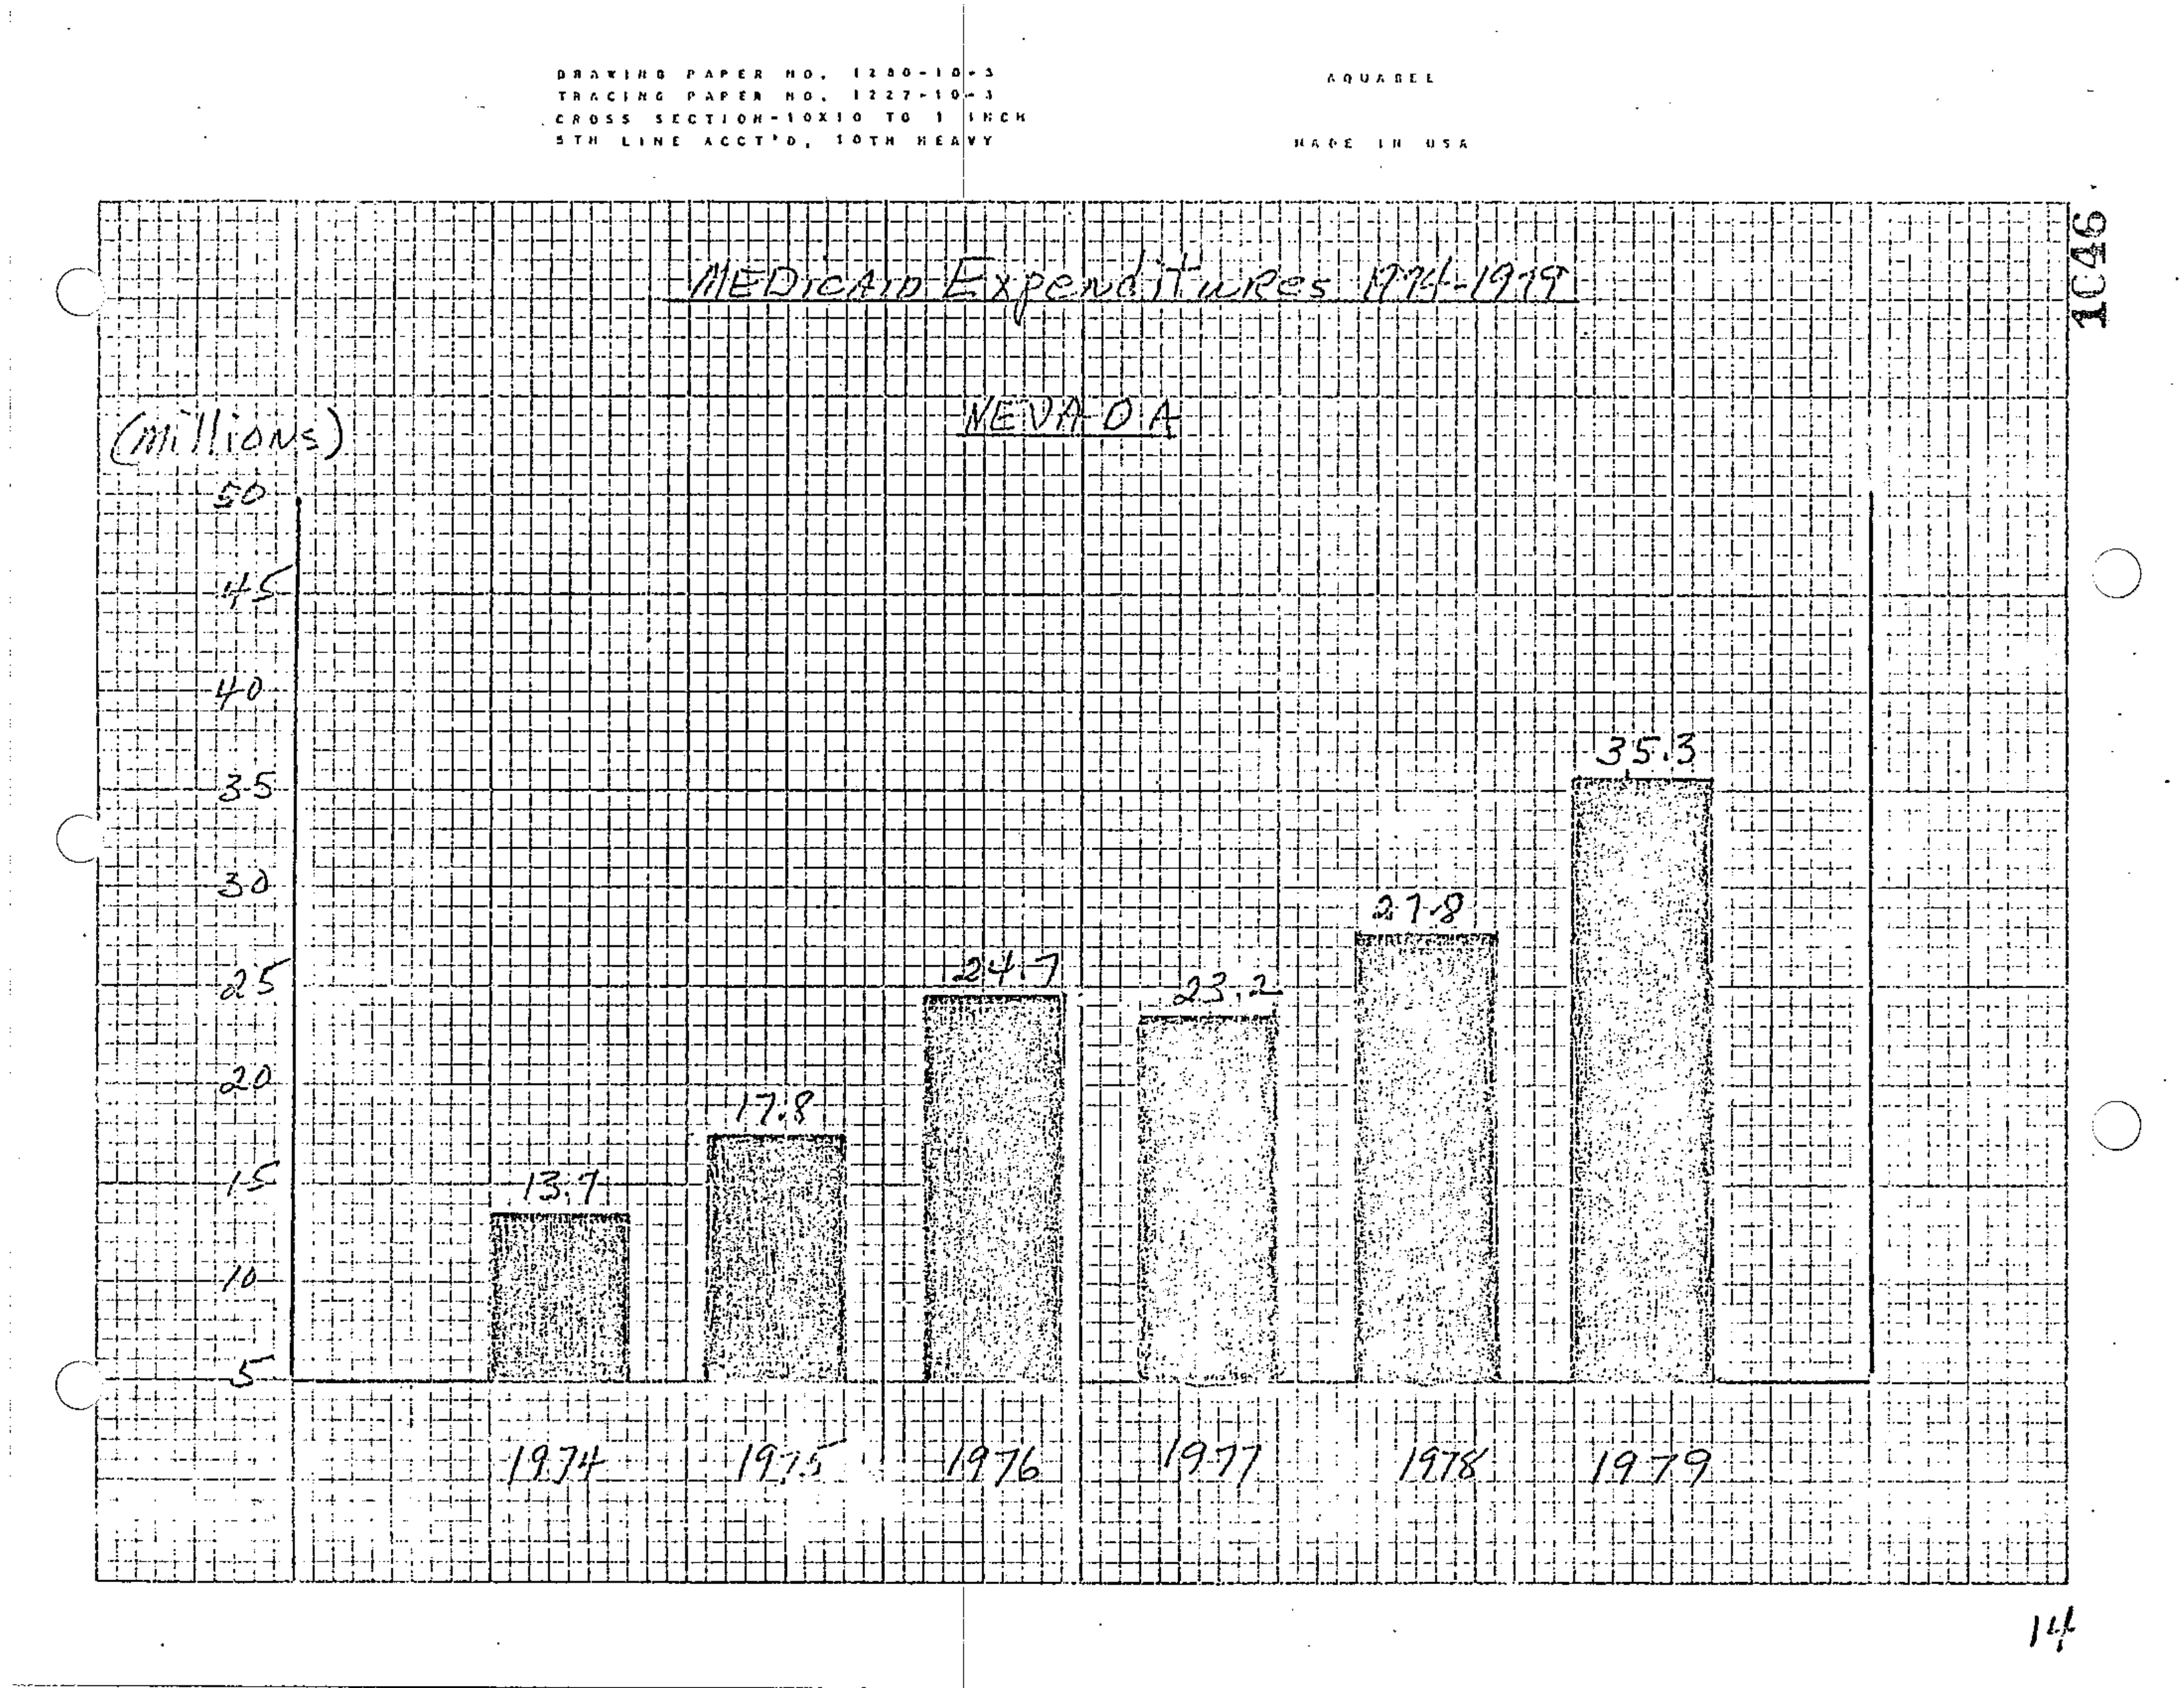 DRAWING PAPER NO. 1280-10-3
TRACING PAPER NO. 1227-10-3
CROSS SECTION-10X10 TO 1 INCH
5TH LINE ACCT'D, 10TH HEAVY
AQUABEE
MADE IN USA
1C46
MEDicAiD Expenditures 1974-1979
NEVADA
(Millions)
50
45
40
35
30
25
20
15
10
5
13.7
17.8
24.7
23.2
27.8
35.3
1974
1975
1976
1977
1978
1979
14